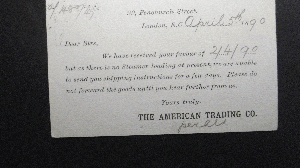 Fenchurch Street,
London, E.C. April 5th 1890
Dear Sirs,
We have received your favour of 4/4/90
but as there is no Steamer loading at present, we are unable
to send you shipping instructions for a few days. Please do
not forward the goods until you hear further from us.
Yours truly,
THE AMERICAN TRADING CO.